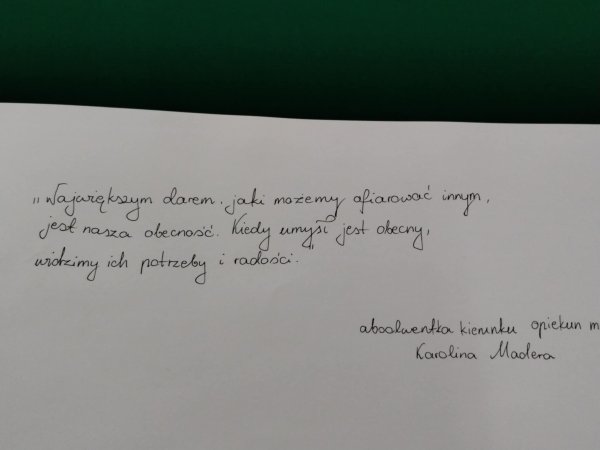 „Największym darem, jaki możemy ofiarować innym,
jest nasza obecność. Kiedy umysł jest obecny,
widzimy ich potrzeby i radości."
absolwentka kierunku opiekun m
Karolina Madera